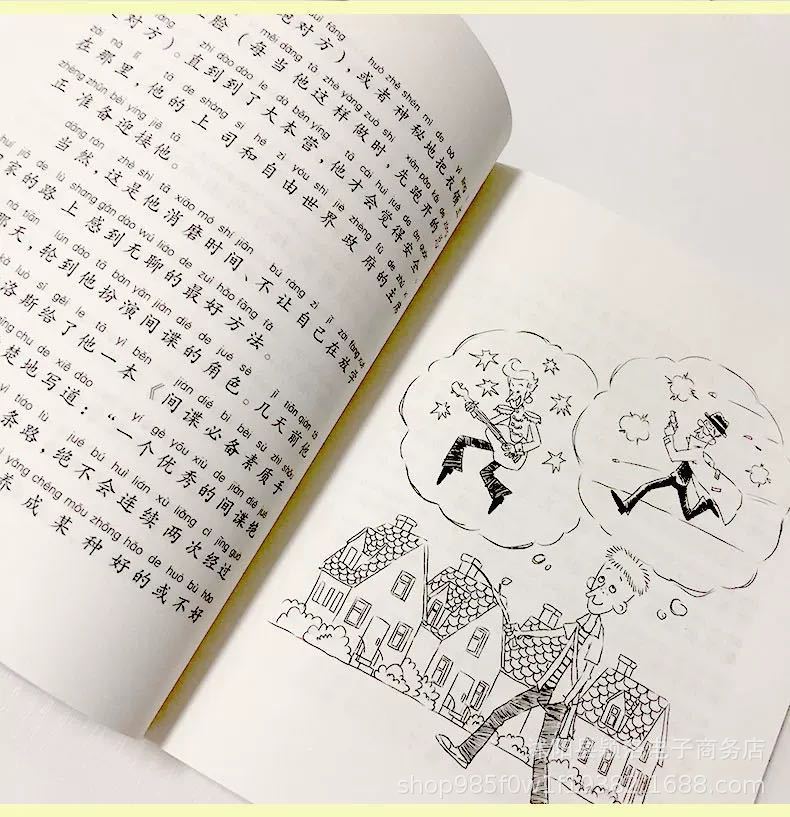 对方），或者神秘地把衣领
huò zhě shén mì de bǎ
脸（每当他这样做时，先跑开的
měi dāng tā zhè yàng zuò shí xiān pǎo kāi de
对方）。直到到了大本营，他才会觉得安全。
zhí dào dào le dà běn yíng tā cái huì jué de ān quán
zài nà lǐ tā de shàng si hé zì yóu shì jiè zhèng fǔ de zhǔ
在那里，他的上司和自由世界政府的主席
zhèng zhǔn bèi yíng jiē tā
正准备迎接他。
dāng rán zhè shì tā xiāo mó shí jiān bú ràng zì jǐ zài fàng xué
当然，这是他消磨时间、不让自己在放学
huí jiā de lù shang gǎn dào wú liáo de zuì hǎo fāng fǎ
回家的路上感到无聊的最好方法。
nà tiān lún dào tā bàn yǎn jiàn dié de jué sè jǐ tiān qián
那天，轮到他扮演间谍的角色。几天前他
luò sī gěi le tā yì běn jiàn dié bì bèi sù zhì shǒu
洛斯给了他一本《间谍必备素质手
chu de xiě dào yí gè yōu xiù de jiàn dié jué
楚地写道：“一个优秀的间谍绝
tiáo lù jué bú huì lián xù liǎng cì jīng guò
条路，绝不会连续两次经过
yǎng chéng mǒu zhǒng hǎo de huò bù hǎo
养成某种好的或不好